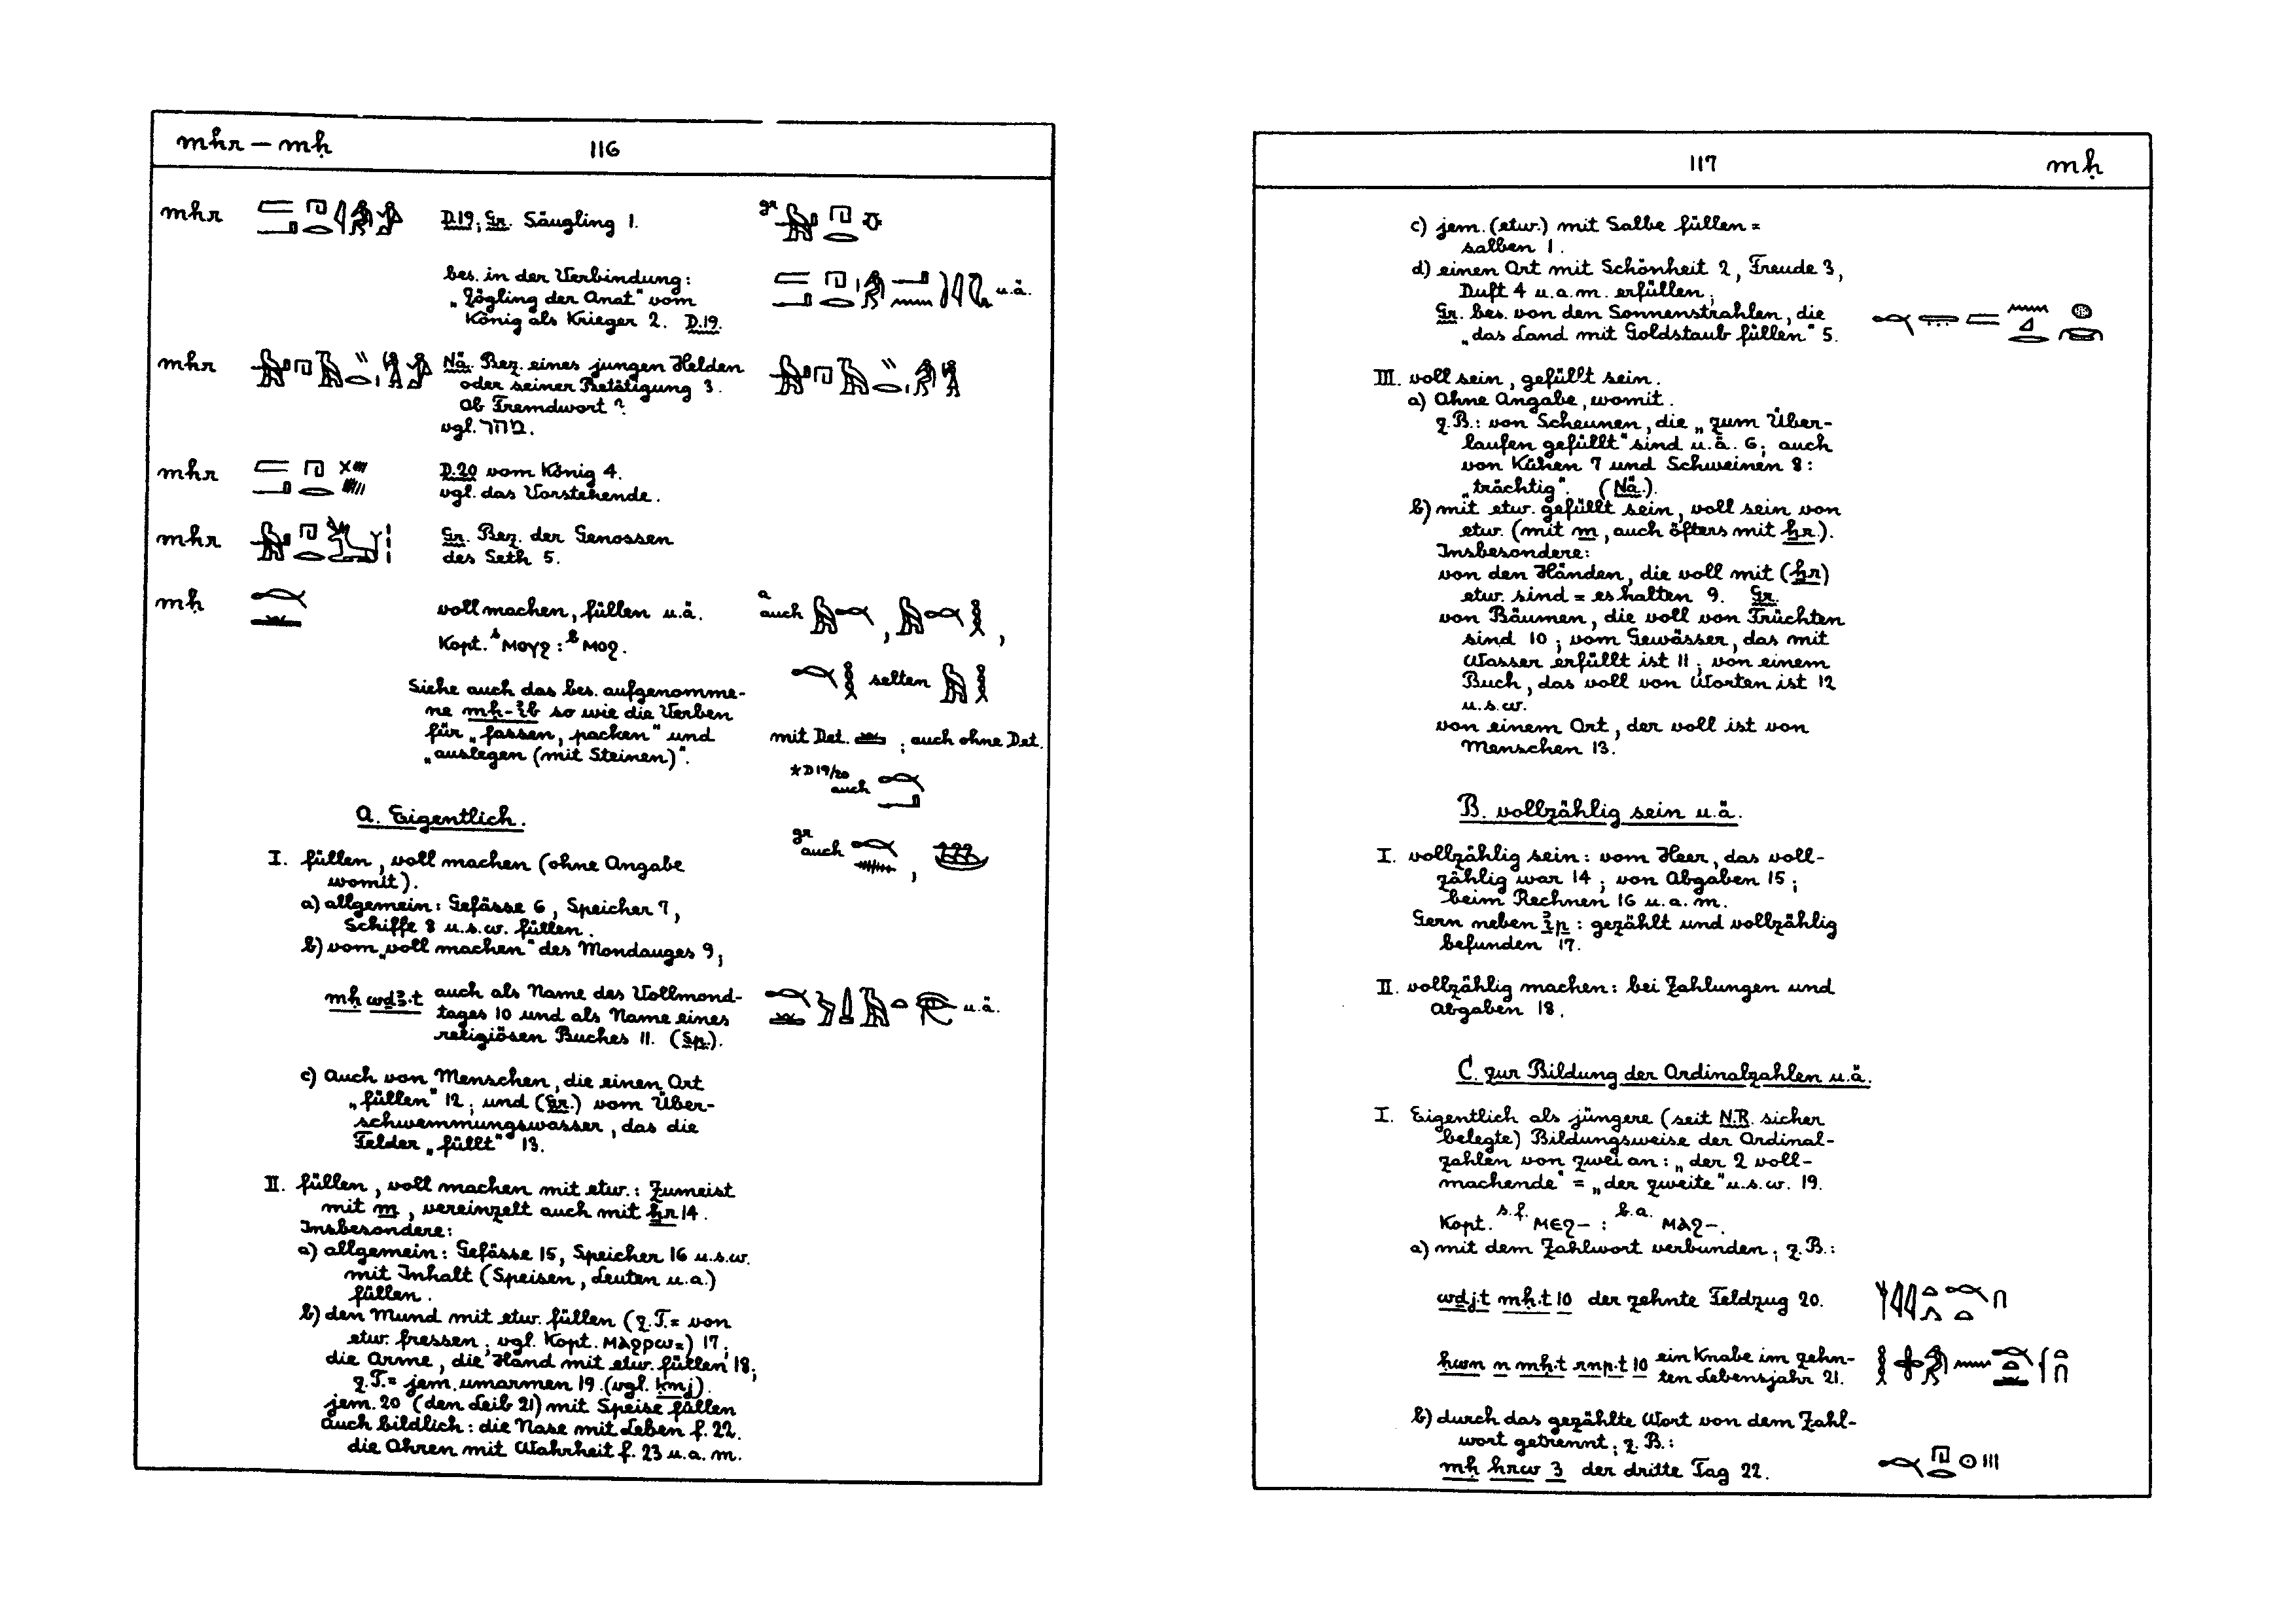 mhr – mḥ 116
mhr D.19; Gr. Säugling 1. gr
bes. in der Verbindung:
„Zögling der Anat“ vom u.ä.
König als Krieger 2. D.19.
mhr Nä. Bez. eines jungen Helden
oder seiner Betätigung 3.
Ob Fremdwort?
vgl. מהר.
mhr D.20 vom König 4.
vgl. das Vorstehende.
mhr Gr. Bez. der Genossen
des Seth 5.
mḥ voll machen, füllen u.ä. a auch , ,
Kopt. s ⲙⲟⲩϩ : b ⲙⲟϩ.
selten
Siehe auch das bes. aufgenomme-
ne mḥ-ı͗b so wie die Verben
für „fassen, packen“ und mit Det. ; auch ohne Det.
„auslegen (mit Steinen)“.
*D19/20 auch
A. Eigentlich.
gr auch ,
I. füllen, voll machen (ohne Angabe
womit).
a) allgemein: Gefässe 6, Speicher 7,
Schiffe 8 u.s.w. füllen.
b) vom „voll machen“ des Mondauges 9;
mḥ wḏꜣ.t auch als Name des Vollmond- u.ä.
tages 10 und als Name eines
religiösen Buches 11. (Sp.).
c) Auch von Menschen, die einen Ort
„füllen“ 12; und (Gr.) vom Über-
schwemmungswasser, das die
Felder „füllt“ 13.
II. füllen, voll machen mit etw.: Zumeist
mit m, vereinzelt auch mit ẖr 14.
Insbesondere:
a) allgemein: Gefässe 15, Speicher 16 u.s.w.
mit Inhalt (Speisen, Leuten u.a.)
füllen.
b) den Mund mit etw. füllen (z.T. = von
etw. fressen; vgl. Kopt. ⲙⲁϩⲣⲱ=) 17;
die Arme, die Hand mit etw. füllen 18;
z.T. = jem. umarmen 19. (vgl. ḳnj).
jem. 20 (den Leib 21) mit Speise füllen
auch bildlich: die Nase mit Leben f. 22.
die Ohren mit Wahrheit f. 23 u.a.m.
117 mḥ
c) jem. (etw.) mit Salbe füllen =
salben 1.
d) einen Ort mit Schönheit 2, Freude 3,
Duft 4 u.a.m. erfüllen;
Gr. bes. von den Sonnenstrahlen, die
„das Land mit Goldstaub füllen“ 5.
III. voll sein, gefüllt sein.
a) Ohne Angabe, womit.
z.B.: von Scheunen, die „zum Über-
laufen gefüllt“ sind u.ä. 6; auch
von Kühen 7 und Schweinen 8:
„trächtig“. (Nä.).
b) mit etw. gefüllt sein, voll sein von
etw. (mit m, auch öfters mit ẖr.).
Insbesondere:
von den Händen, die voll mit (ẖr)
etw. sind = es halten 9. Gr.
von Bäumen, die voll von Früchten
sind 10; vom Gewässer, das mit
Wasser erfüllt ist 11; von einem
Buch, das voll von Worten ist 12
u.s.w.
von einem Ort, der voll ist von
Menschen 13.
B. vollzählig sein u.ä.
I. vollzählig sein: vom Heer, das voll-
zählig war 14; von Abgaben 15;
beim Rechnen 16 u.a.m.
Gern neben ı͗p: gezählt und vollzählig
befunden 17.
II. vollzählig machen: bei Zahlungen und
Abgaben 18.
C. zur Bildung der Ordinalzahlen u.ä.
I. Eigentlich als jüngere (seit N.R. sicher
belegte) Bildungsweise der Ordinal-
zahlen von zwei an: „der 2 voll-
machende“ = „der zweite“ u.s.w. 19.
Kopt. s.f. ⲙⲉϩ– : b.a. ⲙⲁϩ–.
a) mit dem Zahlwort verbunden; z.B.:
wḏj.t mḥ.t 10 der zehnte Feldzug 20.
ḥwn n mḥ.t rnp.t 10 ein Knabe im zehn-
ten Lebensjahr 21.
b) durch das gezählte Wort von dem Zahl-
wort getrennt; z.B.:
mḥ hrw 3 der dritte Tag 22.